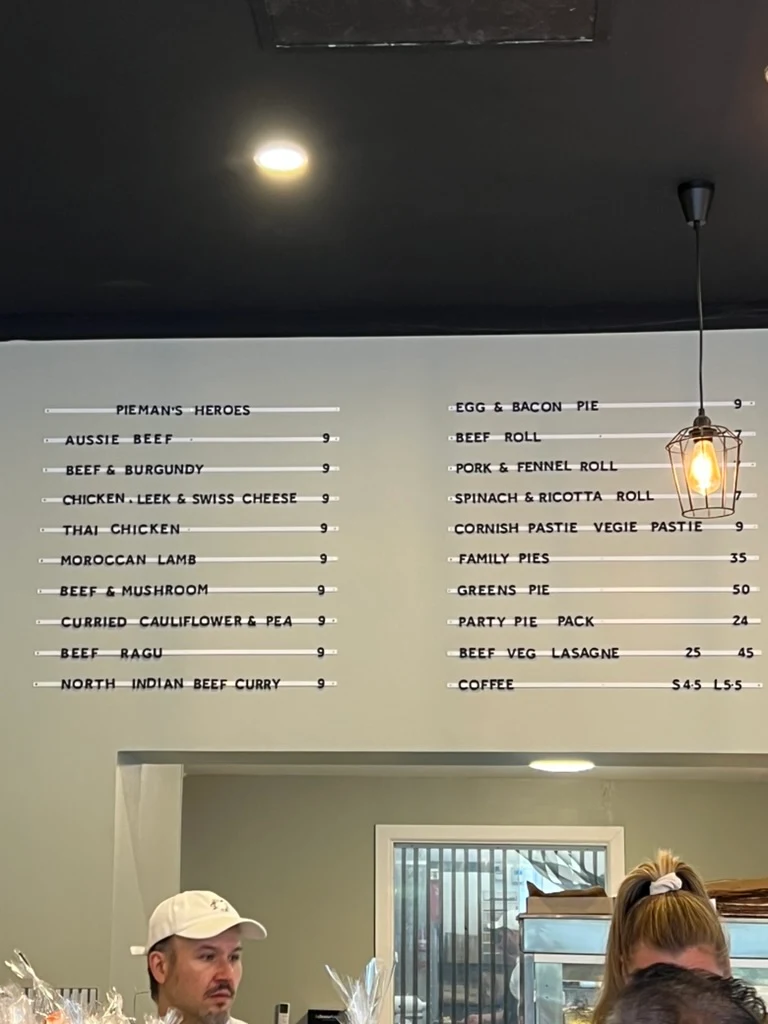 PIEMAN'S HEROES
AUSSIE BEEF 9
BEEF & BURGUNDY 9
CHICKEN, LEEK & SWISS CHEESE 9
THAI CHICKEN 9
MOROCCAN LAMB 9
BEEF & MUSHROOM 9
CURRIED CAULIFLOWER & PEA 9
BEEF RAGU 9
NORTH INDIAN BEEF CURRY 9
EGG & BACON PIE 9
BEEF ROLL 7
PORK & FENNEL ROLL
SPINACH & RICOTTA ROLL 7
CORNISH PASTIE VEGIE PASTIE 9
FAMILY PIES 35
GREENS PIE 50
PARTY PIE PACK 24
BEEF VEG LASAGNE 25 45
COFFEE S4·5 L5·5